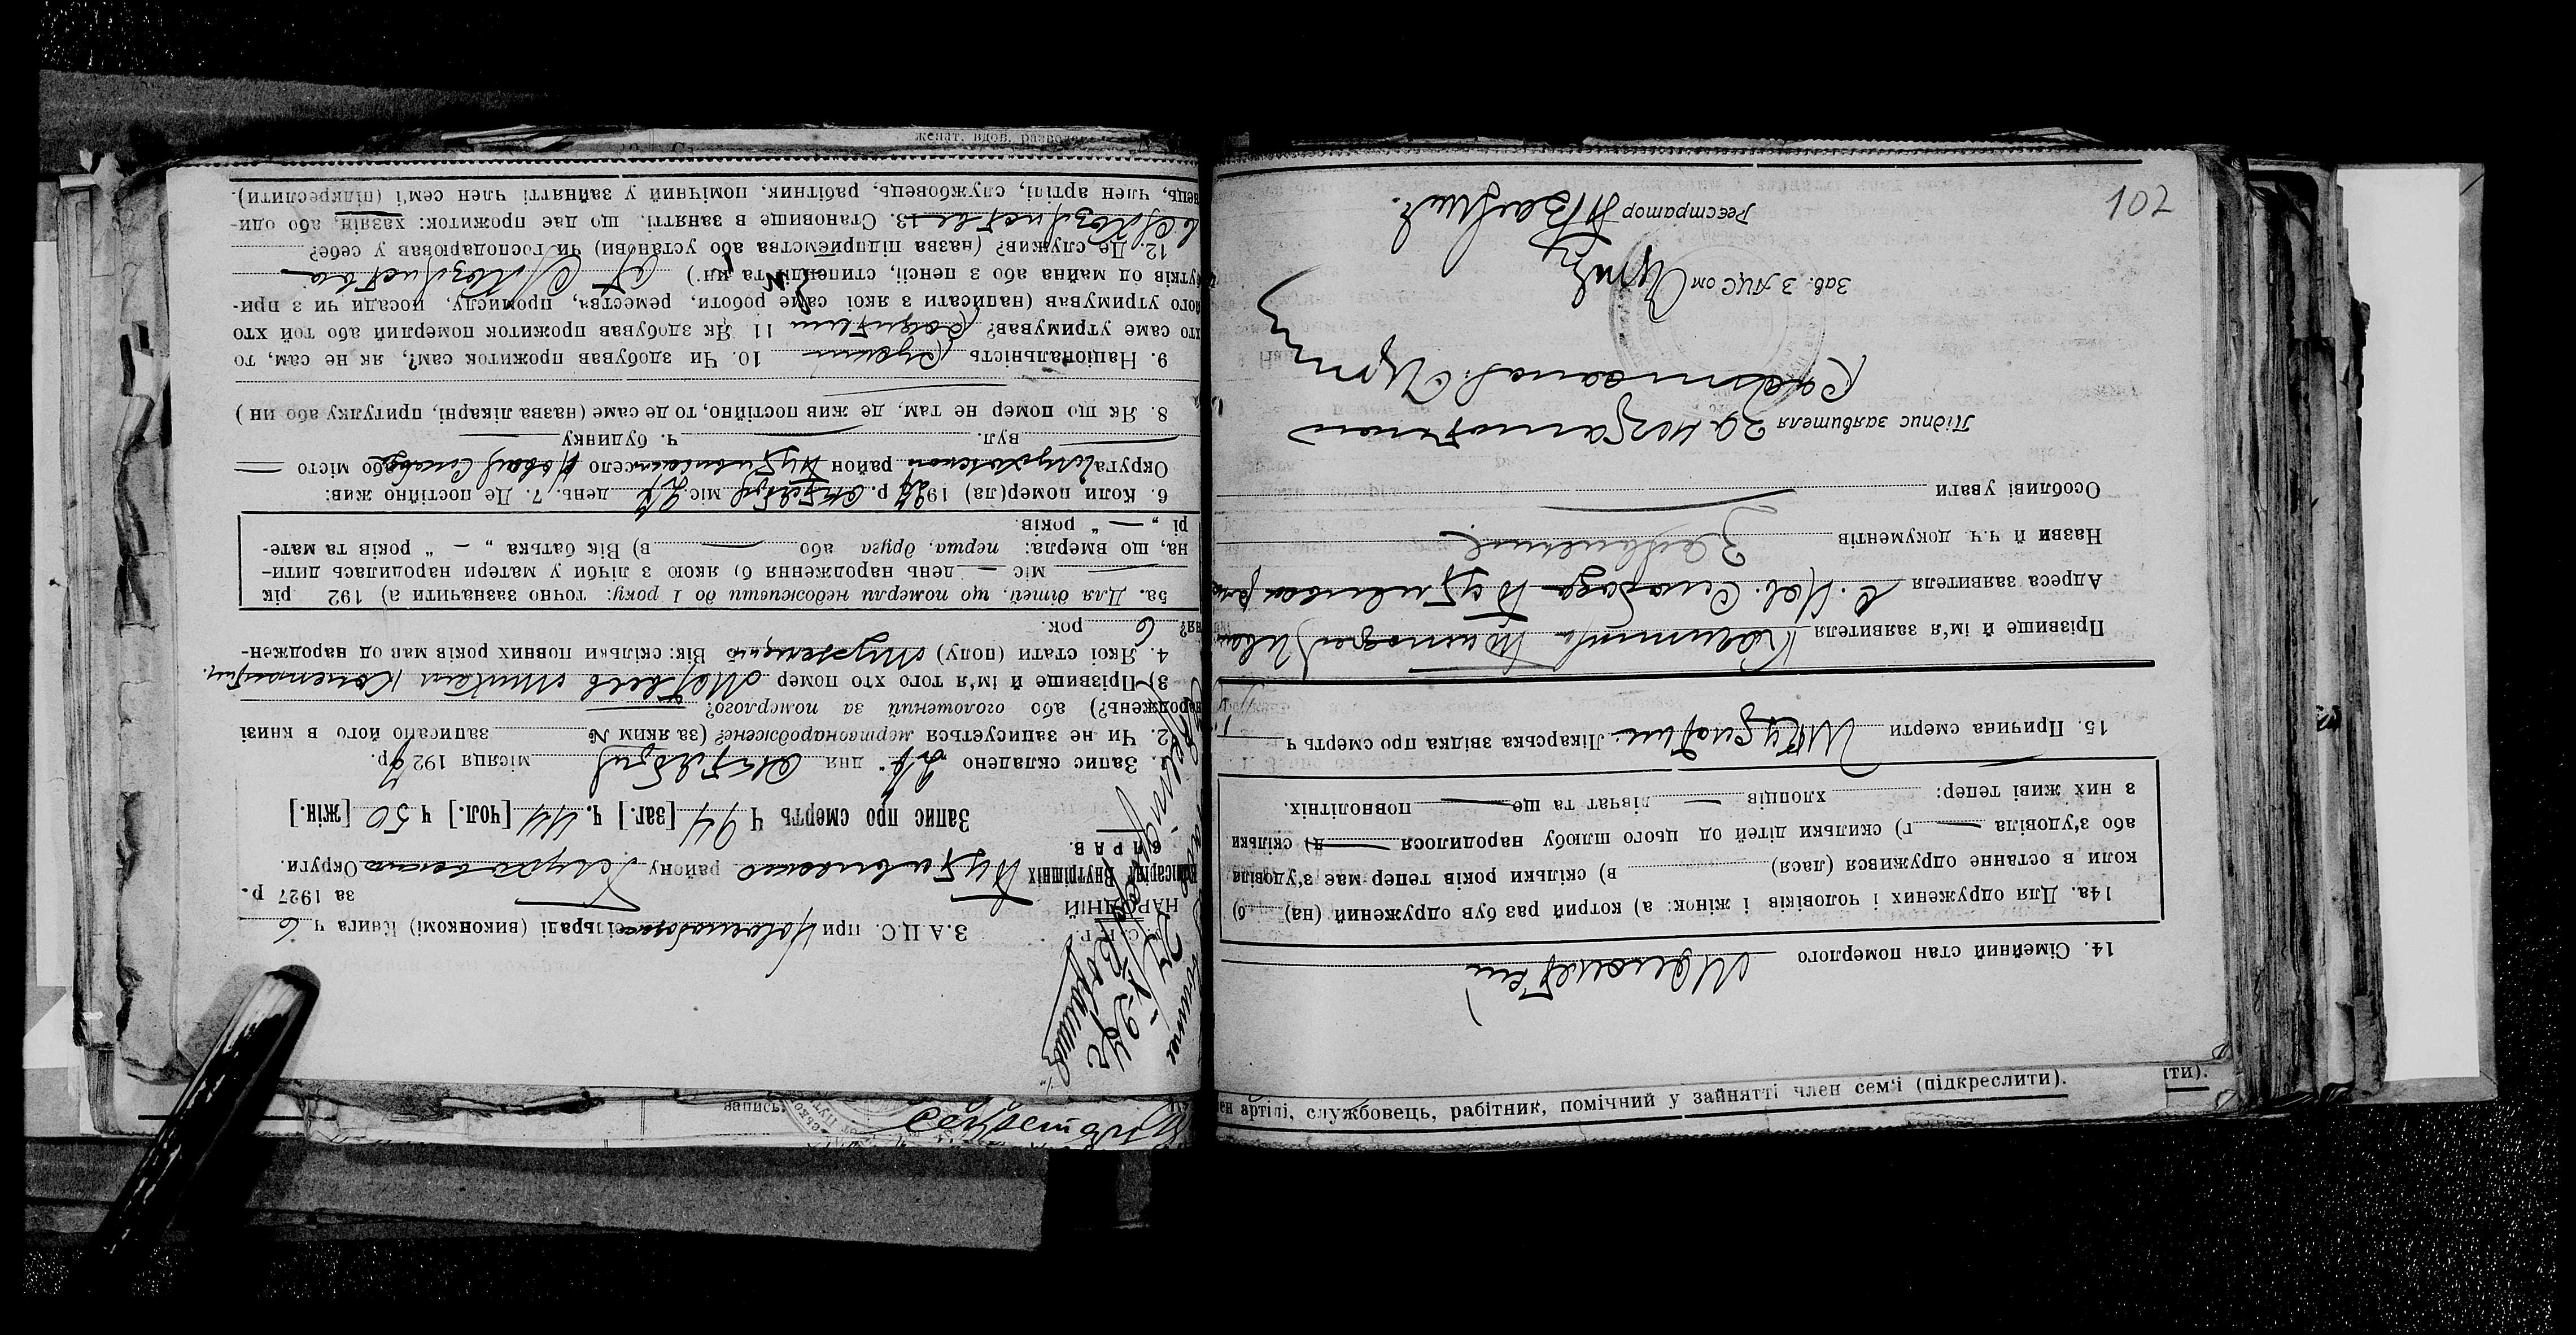 Н. К. В. С.
У. С. Р. Р.
НАРОДНІЙ
Комісаріят Внутрішніх
СПРАВ.
З.А.Ц.С. при Новослободской сільраді (виконкомі) Книга ч. 6
за 1927 р.
Путивльского району Глуховского Округи.
Запис про смерть Ч 94 [заг.] ч. 44 [чол.] ч 50 [жін.]
1. Запис складено 24 дня Октября місяця 1927 р.
2. Чи не записується мертвонароджене? (за яким № записано його в книзі
народжень?) або оголошений за померлого?
3) Прізвище й ім'я того хто помер Матвеев Михаил
4. Якої статі (полу) мужеський 5 Вік: скільки повних років мав од народжен-
ня? 6 рок.
5а. Для дітей, що померли недоживши до 1 року: точно зазначити а) 192 рік
— міс — день народження б) якою з лічби у матери народилась дити-
на, що вмерла: перша, друга або — в) Вік батька „ — “ років та мате-
рі „ — “ років.
6. Коли помер(ла) 1927 р. Октября міс. 24 день. 7. Де постійно жив:
Округа Глуховской район Путивльский село Новая Слобода або місто —
— вул. — ч. будинку —
8. Як що помер не там, де жив постійно, то де саме (назва лікарні, притулку або ин )
9. Національність русский 10. Чи здобував прожиток сам?, як не сам, то
хто саме утримував? родители 11 Як здобував прожиток померлий або той хто
його утримував (написати з якої саме роботи, ремества, промислу, посади чи з при-
бутків од майна або з пенсії, стипендій та ин.) от с/хозяйства
12. Де служив? (назва підприємства або установи) чи господарював у себе?
в с/хозяйстве 13. Становище в занятті. що дає прожиток: хазяїн, або оди-
нець, член артілі, службовець, рабітник, помічний у зайнятті член семі (підкреслити).
102
14. Сімейний стан померлого Малолетний
14а. Для одружених і чоловіків і жінок: а) котрий раз був одружений (на) — б)
коли в останне одружився (лася) в) скільки років тепер має з'удовіла
або з'удовіла — г) скільки дітей од цього шлюбу народилося — д) скільки
з них живі тепер: хлопців — дівчат та ще — повнолітніх.
15. Причина смерти Лікарська звідка про смерть ч
Прізвище й ім'я заявителя
Адреса заявителя с. Нов. Слобода Путивльского района
Назви й ч.ч. документів Заявление
Особливі уваги
Підпис заявителя За неграмотного
расписался
Зав. ЗАЦСом
Реєстратор
запись
секретарь
ен артілі, службовець, рабітник, помічний у зайнятті член семі (підкреслити).
ити).
женат. вдов. разведен